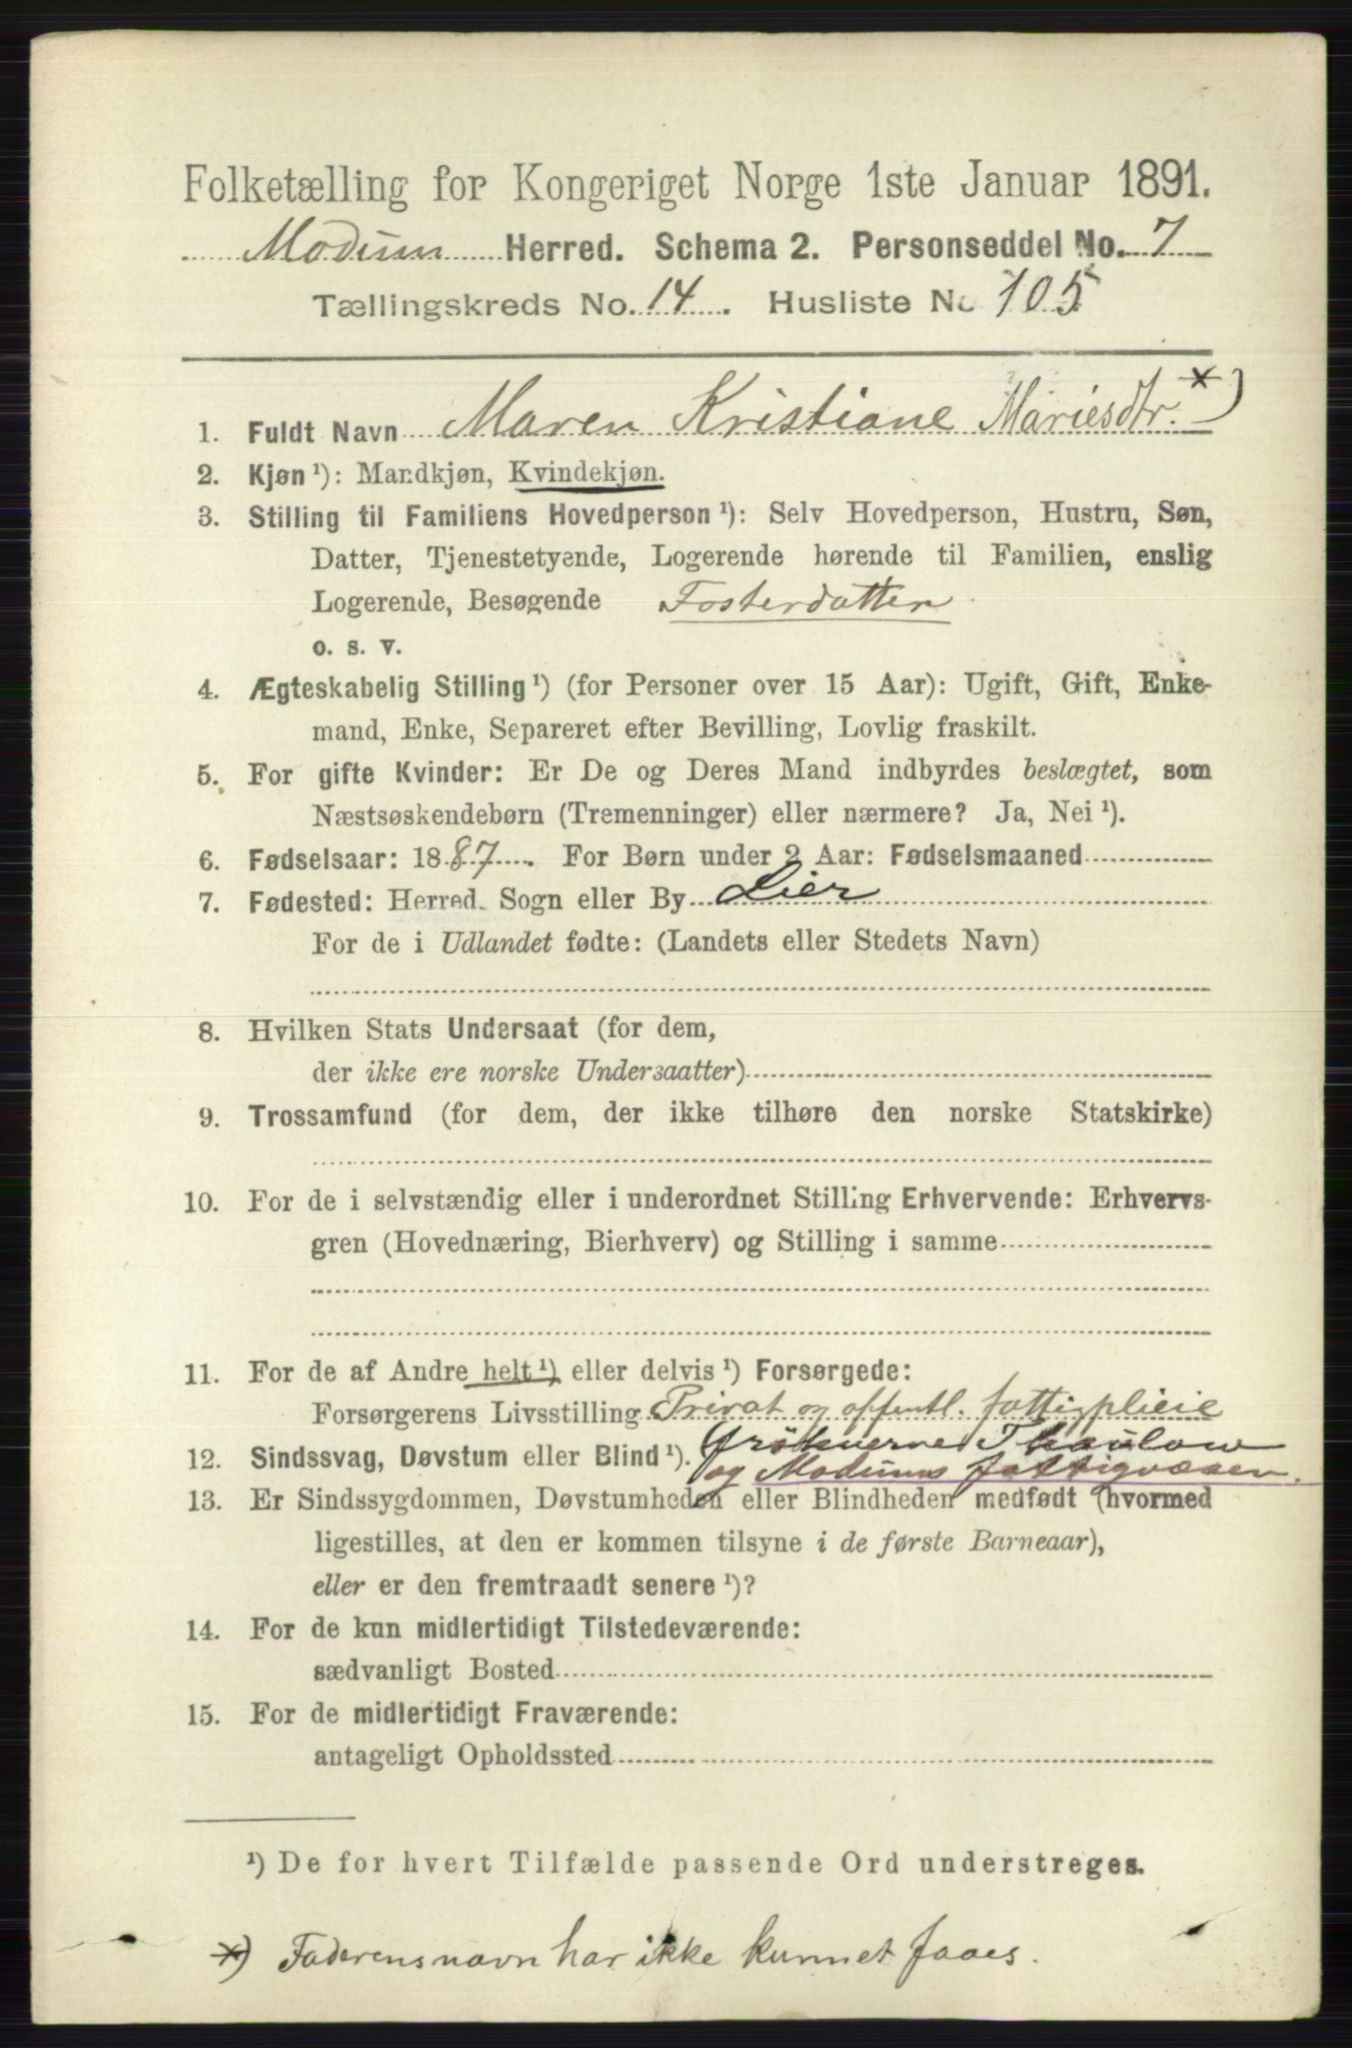 Folketælling for Kongeriget Norge 1ste Januar 1891.
Modum Herred. Schema 2. Personseddel No. 7
Tællingskreds No. 14. Husliste No 105
1. Fuldt Navn Maren Kristiane Mariesdtr. *)
2. Kjøn ¹): Mandkjøn, Kvindekjøn.
3. Stilling til Familiens Hovedperson ¹): Selv Hovedperson, Hustru, Søn,
Datter, Tjenestetyende, Logerende hørende til Familien, enslig
Logerende, Besøgende Fosterdatter
o. s. v.
4. Ægteskabelig Stilling ¹) (for Personer over 15 Aar): Ugift, Gift, Enke-
mand, Enke, Separeret efter Bevilling, Lovlig fraskilt.
5. For gifte Kvinder: Er De og Deres Mand indbyrdes beslægtet, som
Næstsøskendebørn (Tremenninger) eller nærmere? Ja, Nei ¹).
6. Fødselsaar: 1887. For Børn under 2 Aar: Fødselsmaaned
7. Fødested: Herred, Sogn eller By Lier
For de i Udlandet fødte: (Landets eller Stedets Navn)
8. Hvilken Stats Undersaat (for dem,
der ikke ere norske Undersaatter)
9. Trossamfund (for dem, der ikke tilhøre den norske Statskirke)
10. For de i selvstændig eller i underordnet Stilling Erhvervende: Erhvervs-
gren (Hovednæring, Bierhverv) og Stilling i samme
11. For de af Andre helt ¹) eller delvis ¹) Forsørgede:
Forsørgerens Livsstilling Privat og offentl. fattigpleie
12. Sindssvag, Døvstum eller Blind ¹). Frøknerne Thaulow
og Modums fattigvæsen.
13. Er Sindssygdommen, Døvstumheden eller Blindheden medfødt (hvormed
ligestilles, at den er kommen tilsyne i de første Barneaar),
eller er den fremtraadt senere ¹)?
14. For de kun midlertidigt Tilstedeværende:
sædvanligt Bosted
15. For de midlertidigt Fraværende:
antageligt Opholdssted
¹) De for hvert Tilfælde passende Ord understreges.
*) Faderens navn har ikke kunnet faaes.